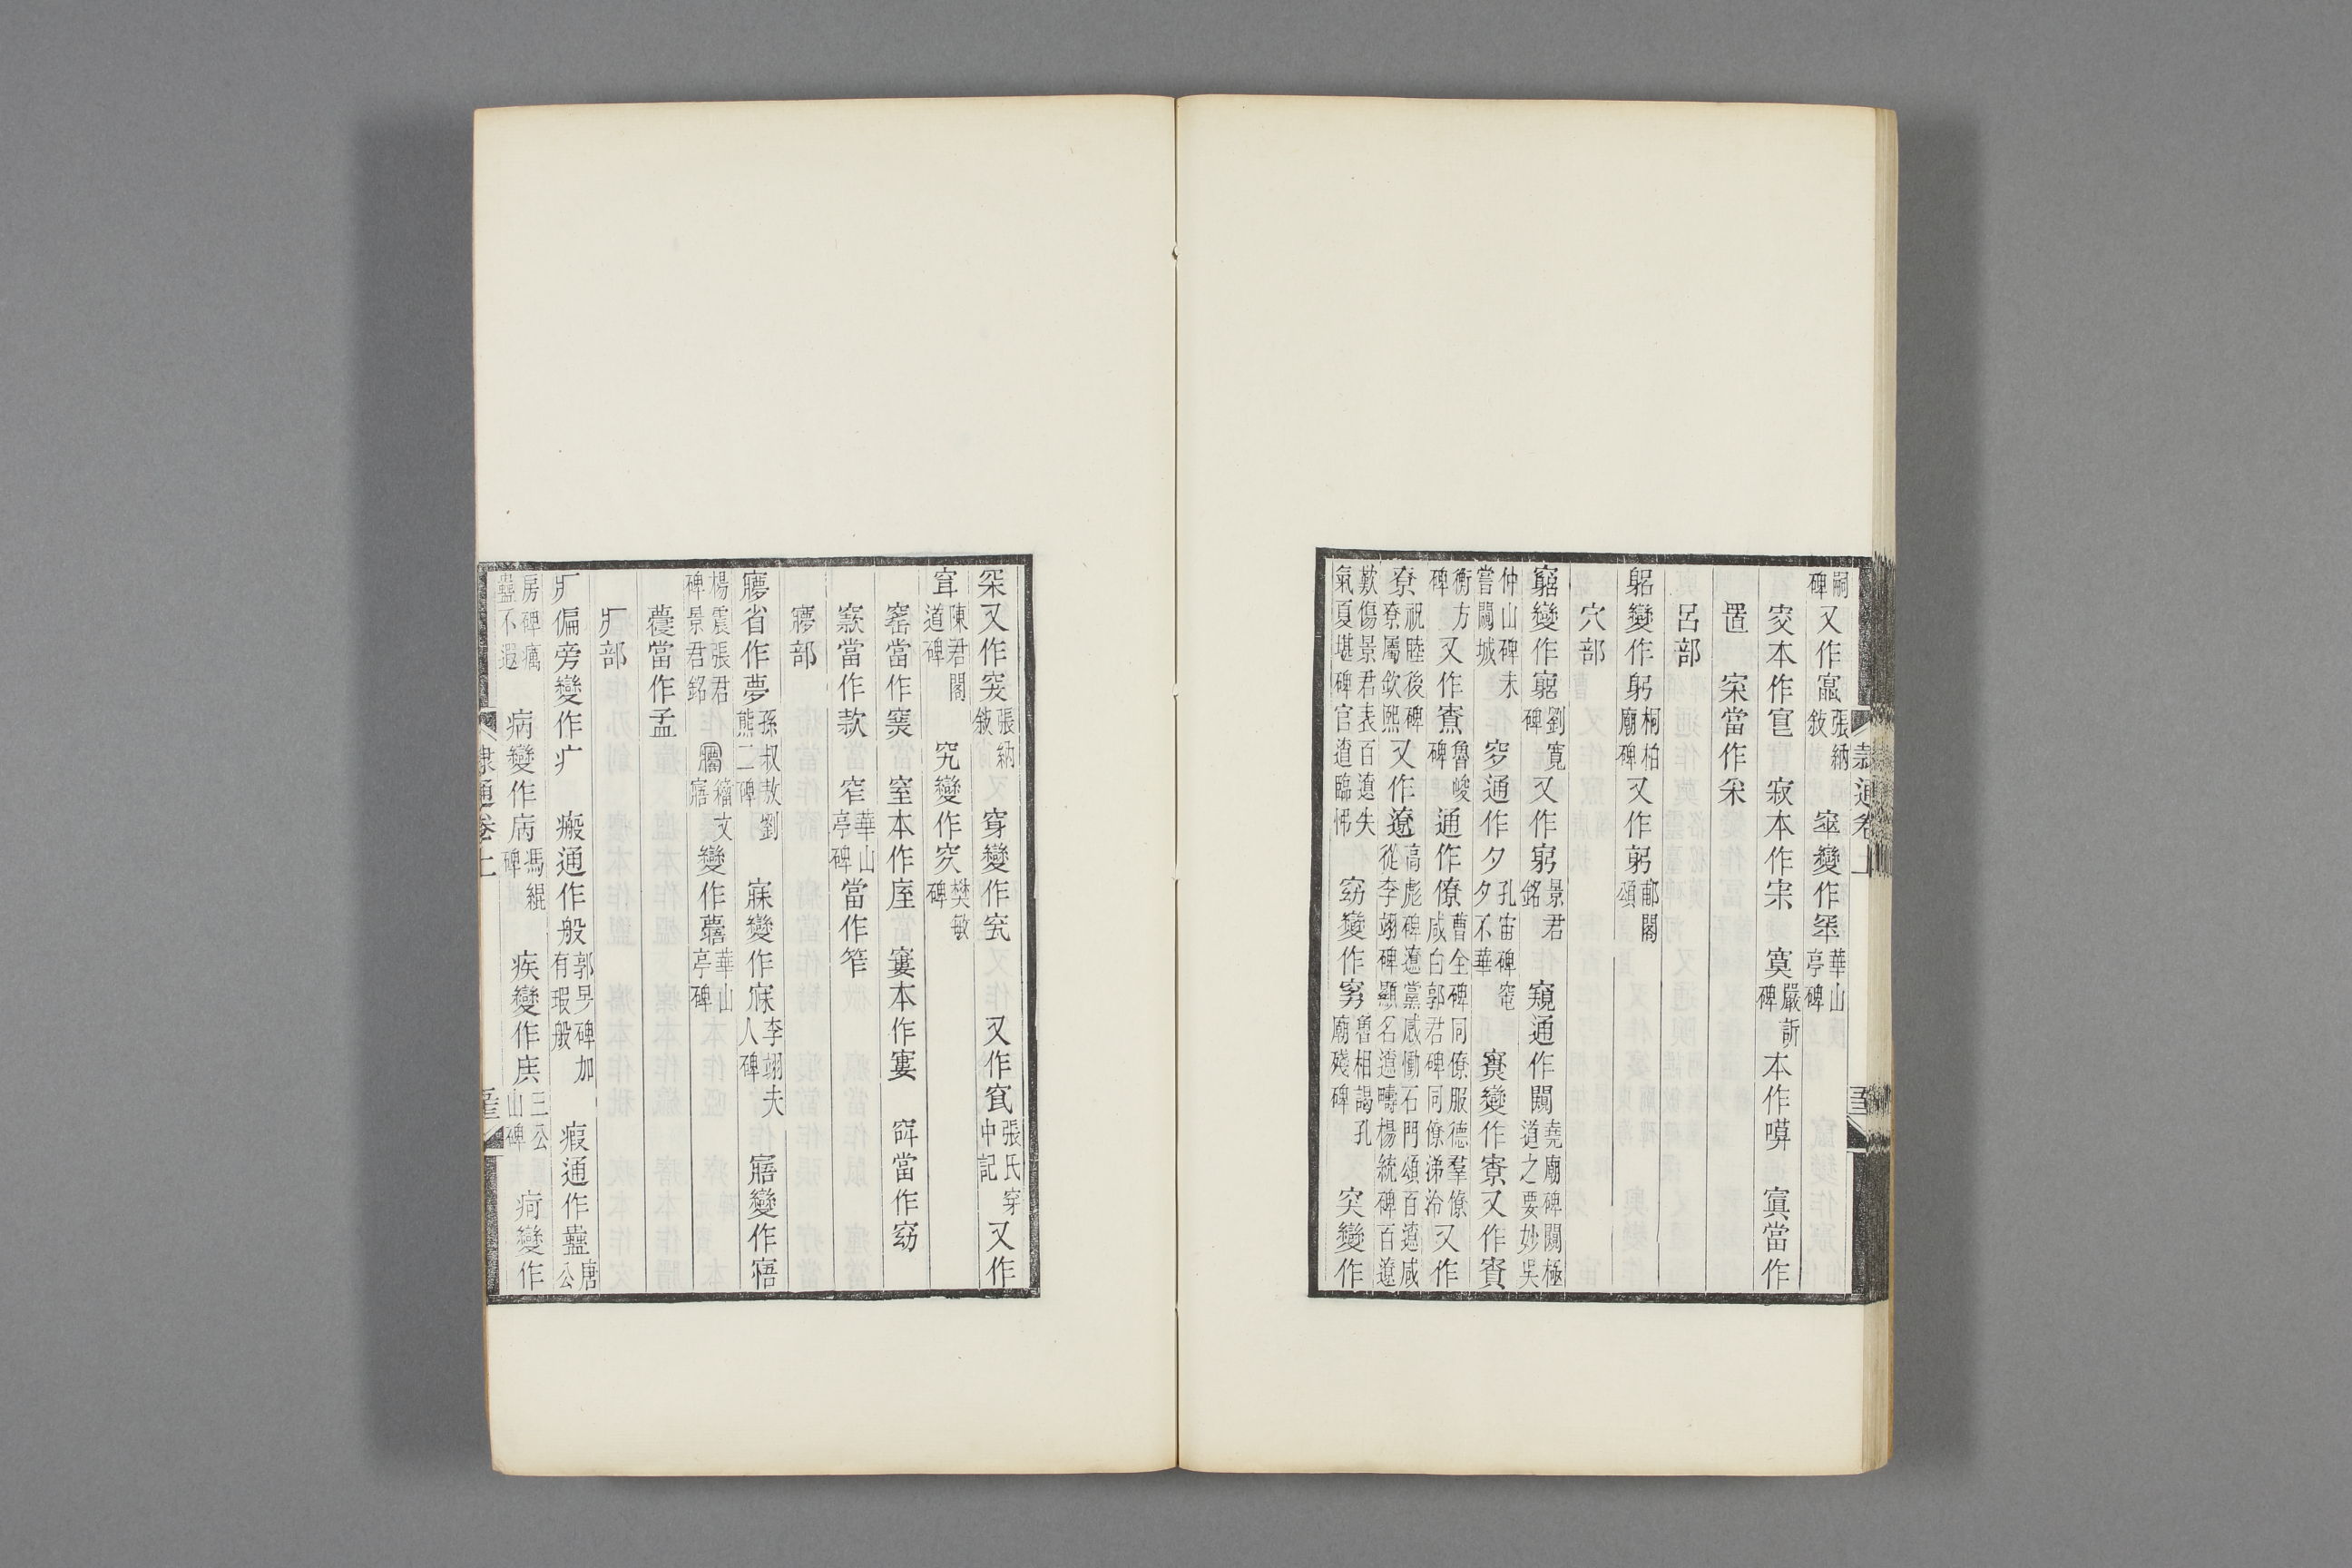 隸通卷上
嗣碑又作寍張納敍 窣變作窂華山亭碑
本作㝐 寂本作宋 寞嚴訢碑本作嗼 寘當作
置 當作采
呂部
躳變作躬桐柏廟碑又作躬郙閣頌
穴部
竆變作窮劉寬碑又作窮景君銘 窺通作闚堯廟碑闚極道之要妙吳
仲山碑未嘗闚城 穸通作夕孔宙碑窀夕不華 變作寮又作
衡方碑又作魯峻碑通作僚曹全碑同僚服德羣僚咸白郭君碑同僚涕泠又作
祝睦後碑寮屬欽熙又作遼高彪碑遼黨感慟石門頌百遼咸從李翊碑顯名遼疇楊統碑百遼
歎傷景君表百遼失氣夏堪碑官遼臨怫 窈變作魯相謁孔廟殘碑 突變作
又作突張納敍 穿變作 又作張氏穿中記又作
陳君閣道碑 究變作樊敏碑
窰當作窯 窒本作庢 窶本作寠 當作窈
窾當作款 窄華山亭碑當作笮
㝱部
㝱省作夢孫叔敖劉熊二碑 寐變作李翊夫人碑 寤變作
楊震張君碑景君銘 籀文寤變作華山亭碑
當作孟
疒部
疒偏旁變作疒 瘢通作般郭旻碑加有瑕般 瘕通作蠱唐公
房碑癘蠱不遐 病變作病馮緄碑 疾變作三公山碑 疴變作
隸通卷上